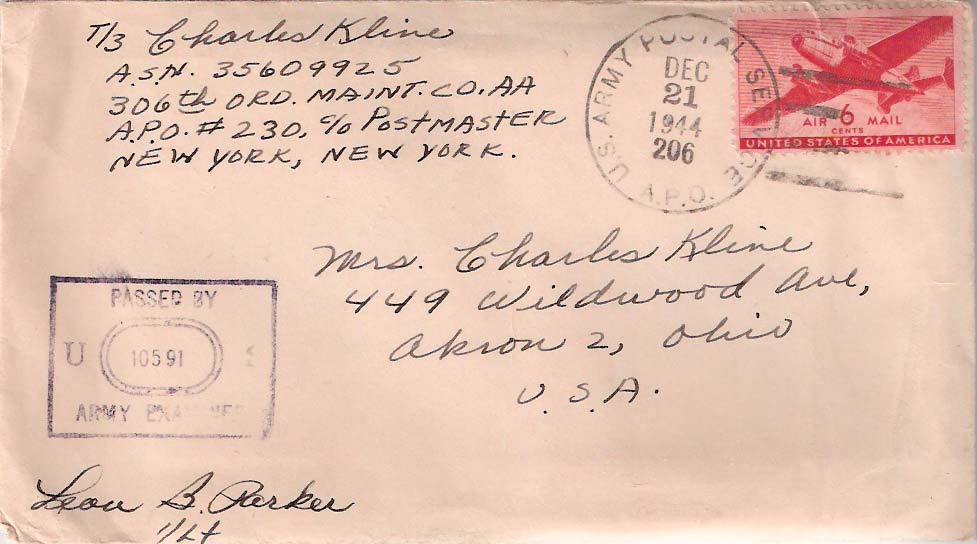 T/3 Charles Kline
A.S.N. 35609925
306th ORD. MAINT. CO. AA
A.P.O. # 230, c/o POSTMASTER
NEW YORK, NEW YORK.
U.S. ARMY POSTAL SERVICE
A.P.O.
DEC
21
1944
206
AIR 6 MAIL
CENTS
UNITED STATES OF AMERICA
Mrs. Charles Kline
449 Wildwood Ave,
Akron 2, Ohio
U.S.A.
PASSED BY
U 10591 S
ARMY EXAMINER
Leon B. Parker
1/Lt